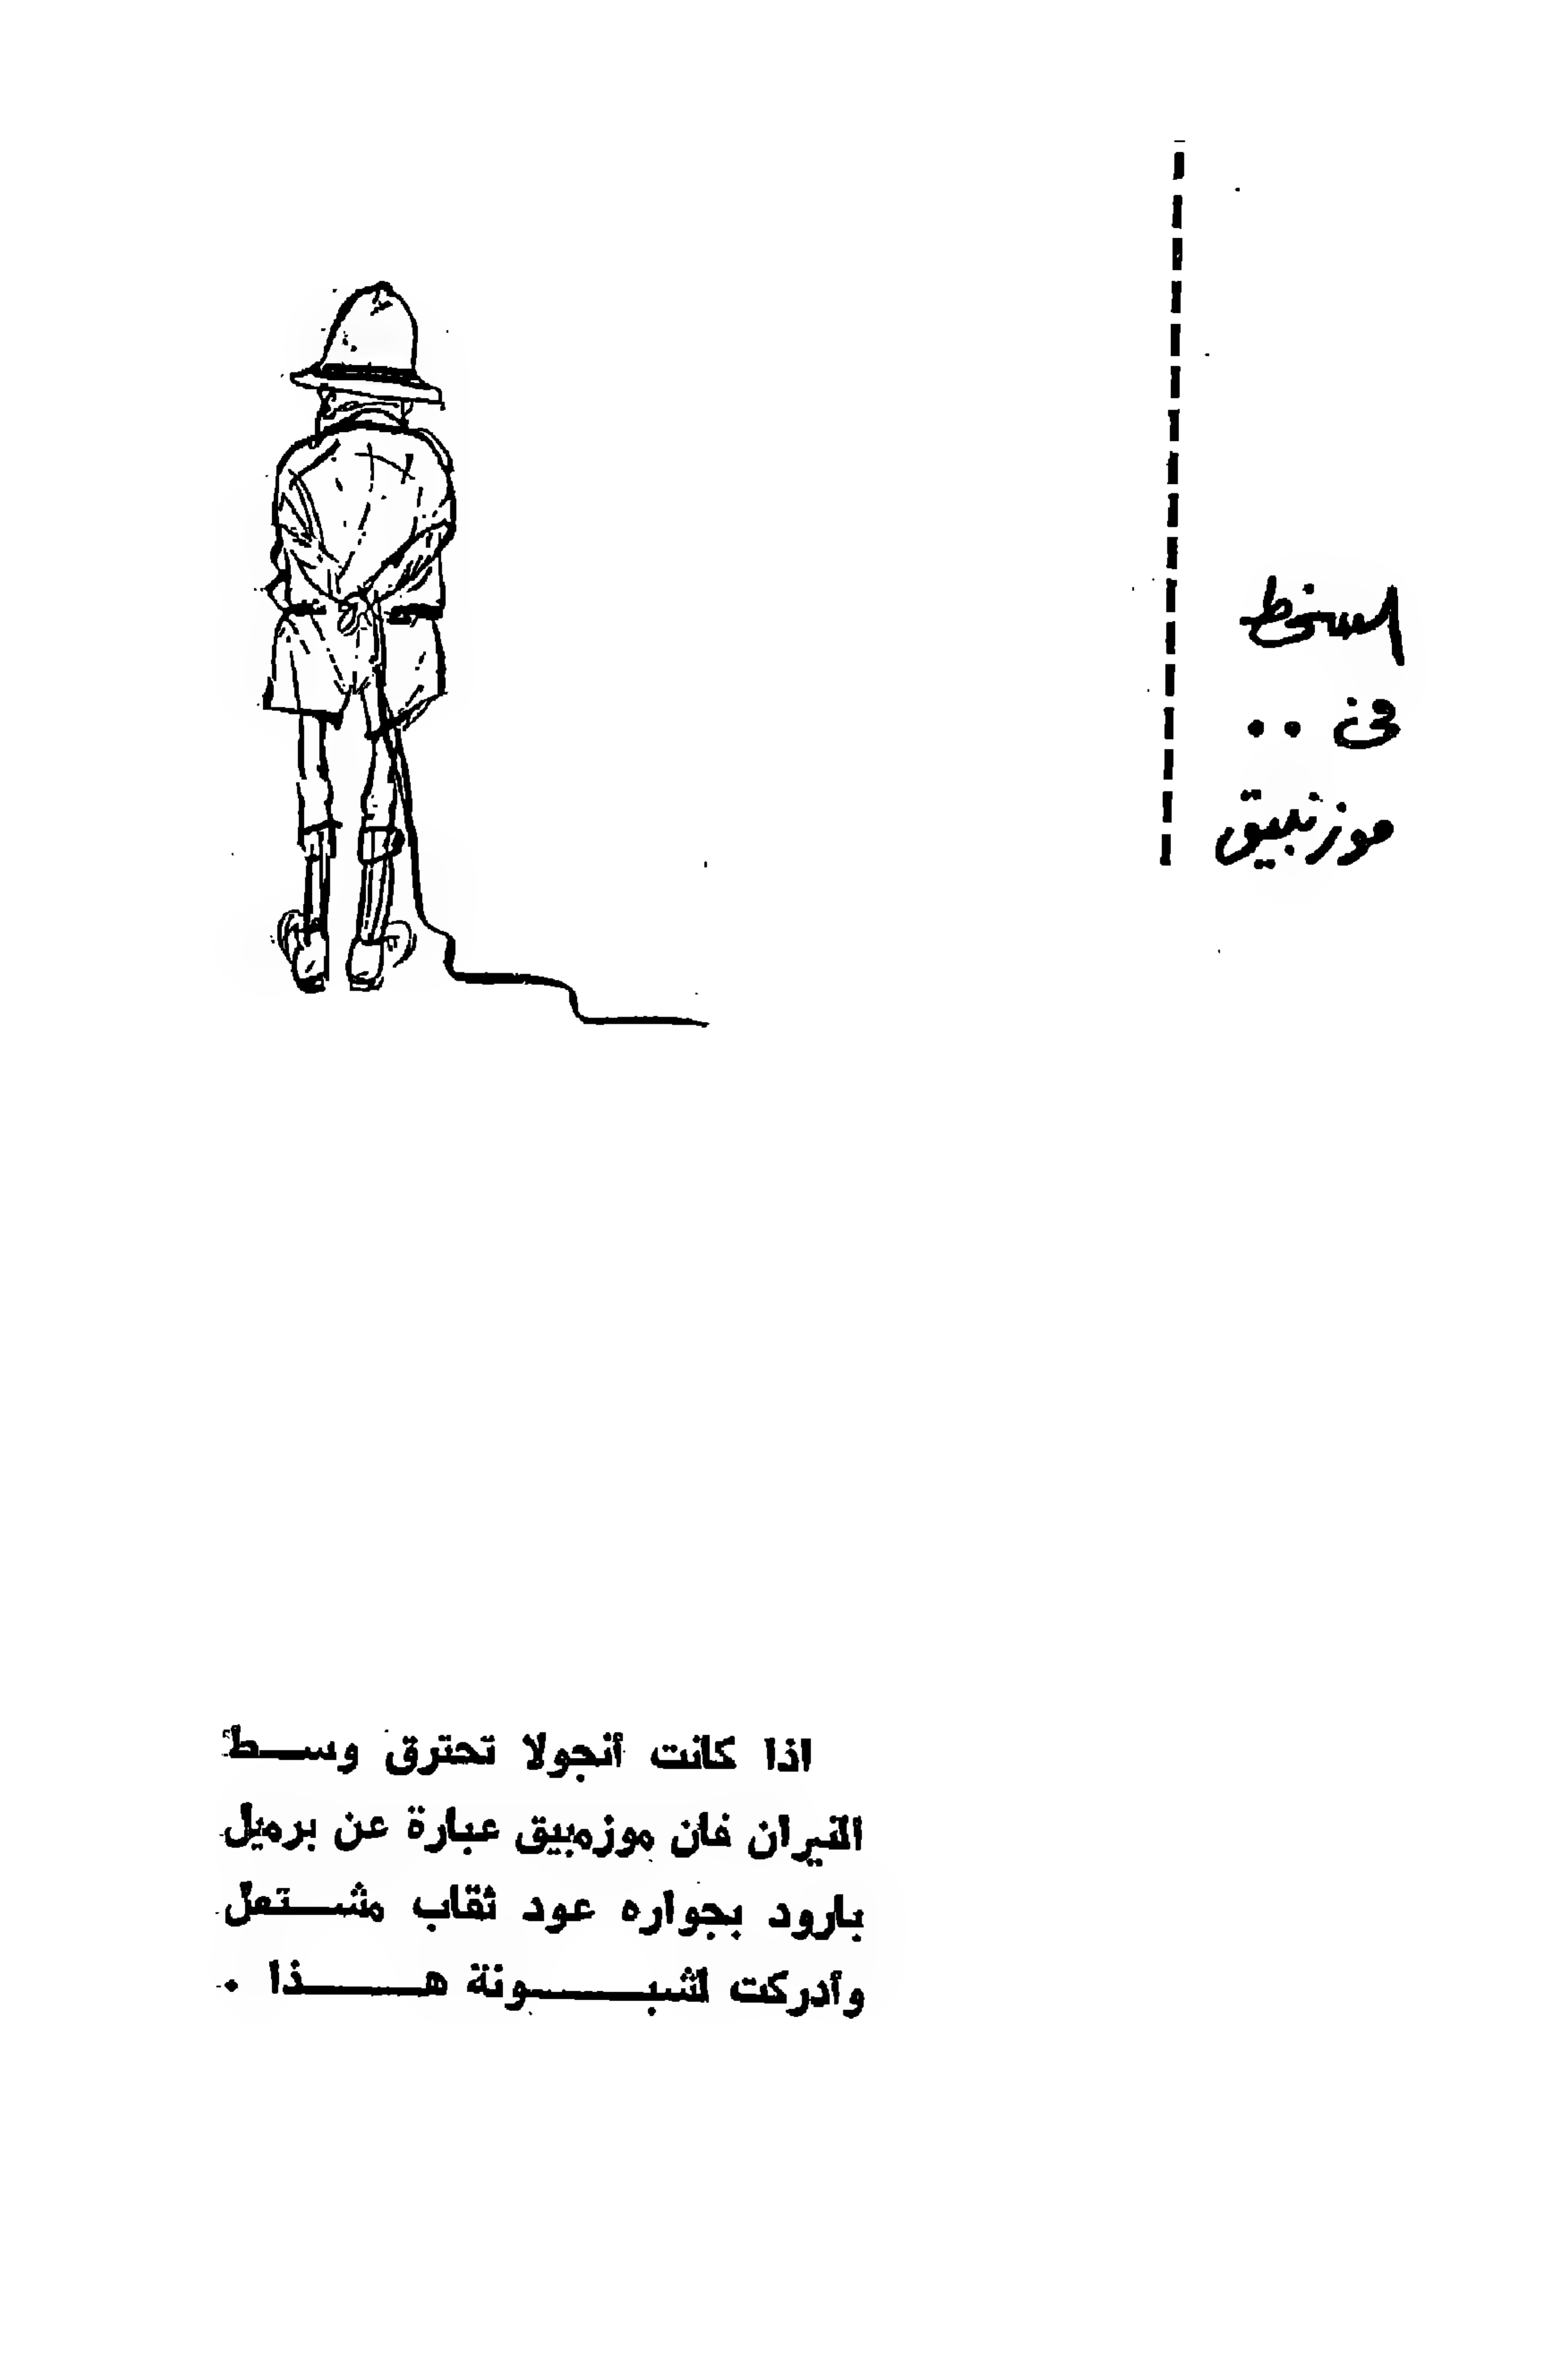 السخط
فى ..
موزنبيق
اذا كانت أنجولا تحترق وسط
النيران فان موزمبيق عبارة عن برميل
بارود بجواره عود ثقاب مشتعل
وأدركت لشبونة هذا .